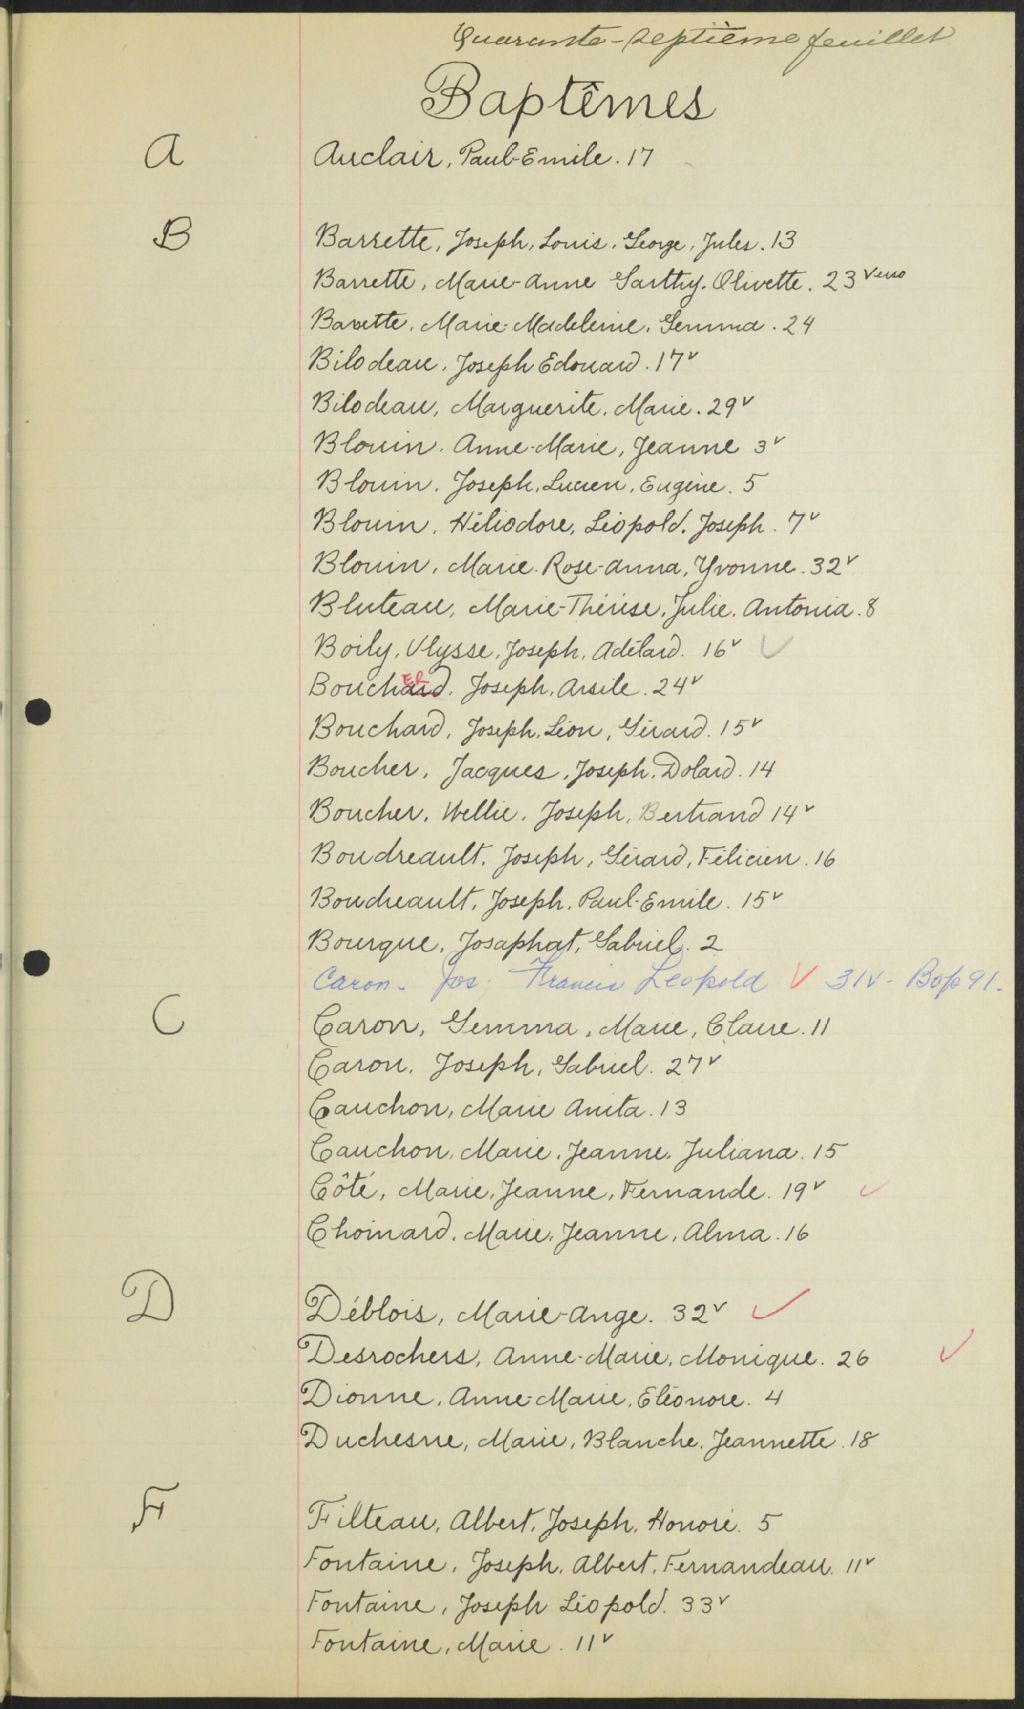 Quarante-septième feuillet
Baptêmes
A
Auclair, Paul-Emile. 17
B
Barrette, Joseph, Louis, George, Jules. 13
Barrette, Marie-Anne Olivette. 23 Verso
Barrette, Marie-Madeleine, Gemma. 24
Bilodeau, Joseph Edouard. 17v
Bilodeau, Marguerite, Marie. 29v
Blouin. Anne-Marie, Jeanne 3v
Blouin. Joseph, Lucien, Eugène. 5
Blouin, Héliodore, Léopold, Joseph. 7v
Blouin, Marie-Rose-Anna, Yvonne. 32v
Bluteau, Marie-Thérèse, Julie, Antonia. 8
Boily, Ulysse, Joseph, Adélard. 16v ✓
Bouchard ER, Joseph, Arsile. 24v
Bouchard, Joseph, Léon, Gérard. 15v
Boucher, Jacques, Joseph, Dolard. 14
Boucher, Wellie, Joseph, Bertrand 14v
Boudreault, Joseph, Gérard, Félicien. 16
Boudreault, Joseph, Paul-Emile. 15v
Bourque, Josaphat, Gabriel. 2
Caron- Jos. Francis Leopold V 31v- Bap 91-
C
Caron, Gemma, Marie, Claire. 11
Caron, Joseph, Gabriel. 27v
Cauchon, Marie Anita. 13
Cauchon, Marie, Jeanne, Juliana. 15
Côté, Marie, Jeanne, Fernande. 19v ✓
Choinard, Marie, Jeanne, Alma. 16
D
Déblois, Marie-Ange. 32v ✓
Desrochers, Anne-Marie, Monique. 26 ✓
Dionne, Anne-Marie, Eléonore. 4
Duchesne, Marie, Blanche, Jeannette. 18
F
Filteau, Albert, Joseph, Honoré. 5
Fontaine, Joseph, Albert, Fernandeau. 11v
Fontaine, Joseph Léopold. 33v
Fontaine, Marie. 11v